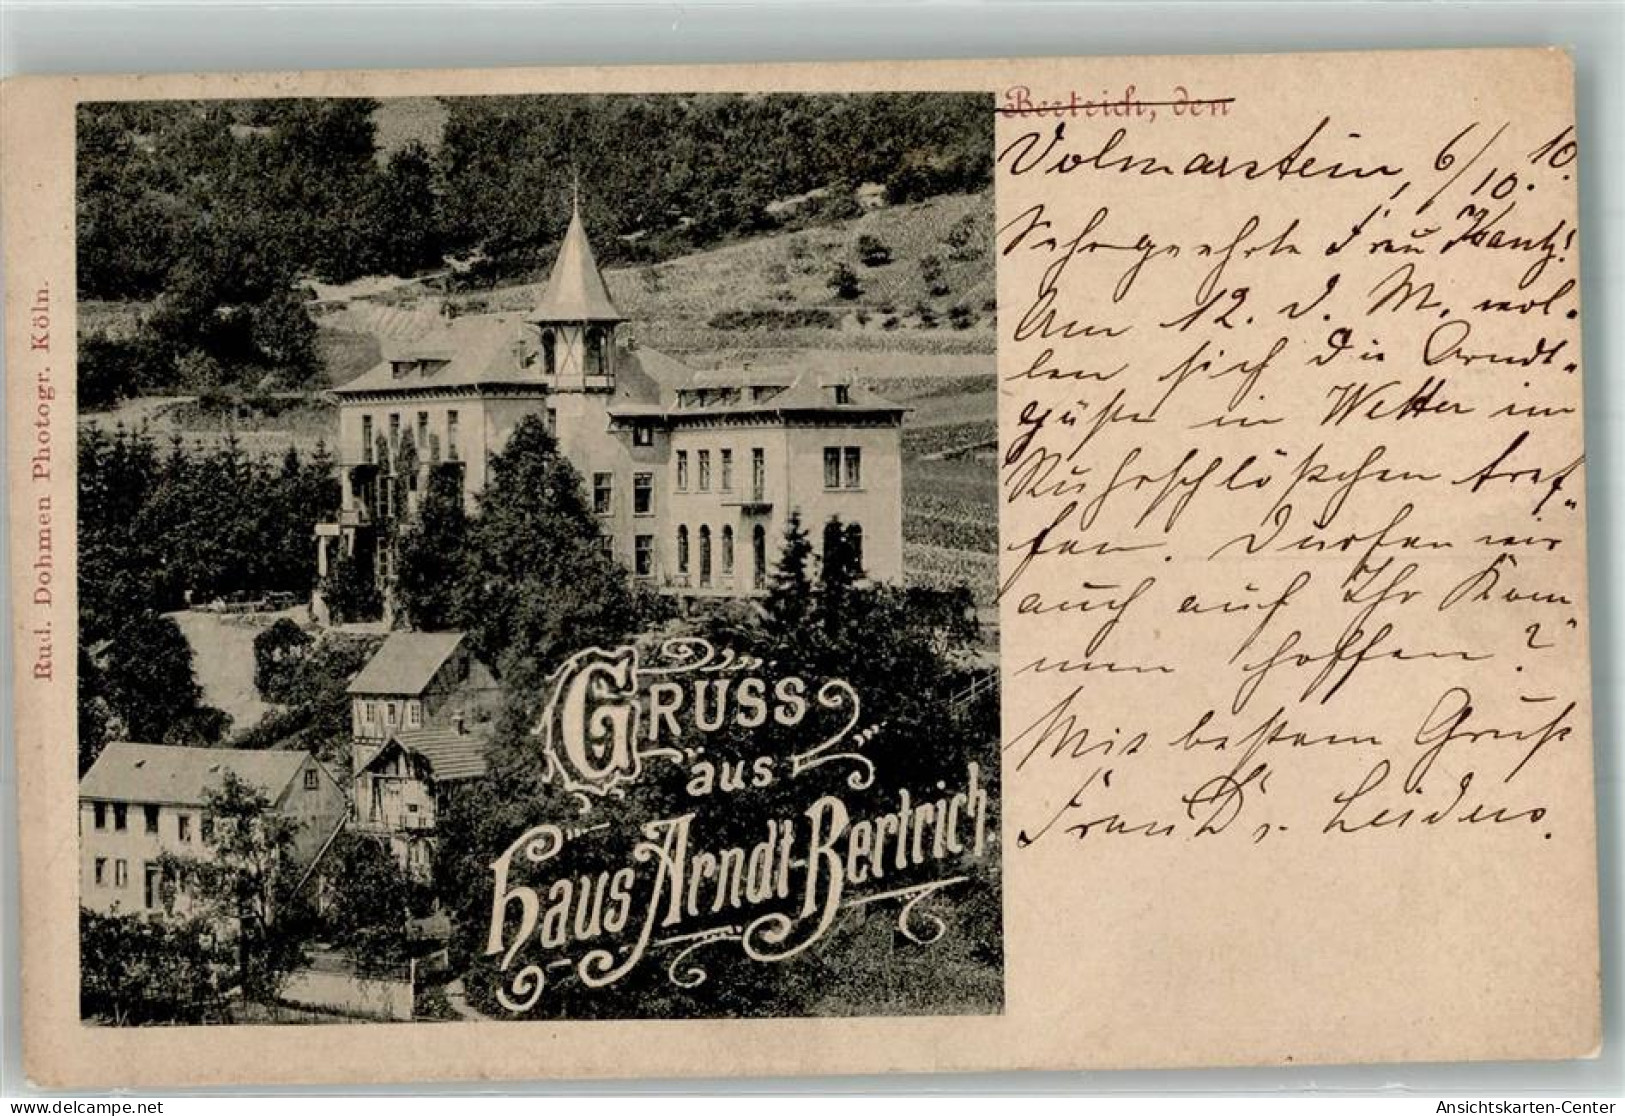 Rud. Dohmen Photogr. Köln.
Gruss
aus
Haus Arndt-Bertrich.
Bertrich, den
Volmarstein, 6/10. 10.
Sehr geehrte Frau Kantz!
Am 12. d. M. wol-
len sich die Arndt-
gäste in Wetter im
Ruhrschlößchen tref-
fen. Dürfen wir
auch auf Ihr Kom-
men hoffen?
Mit bestem Gruß
Frau
Ansichtskarten-Center